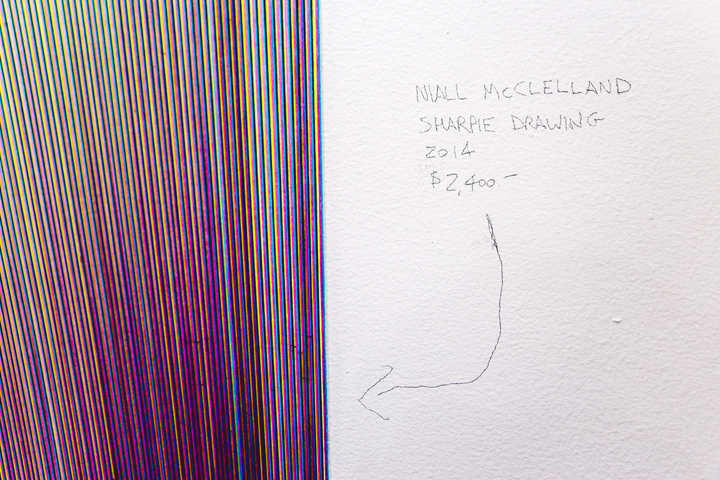 NIALL McCLELLAND
SHARPIE DRAWING
2014
$2,400-